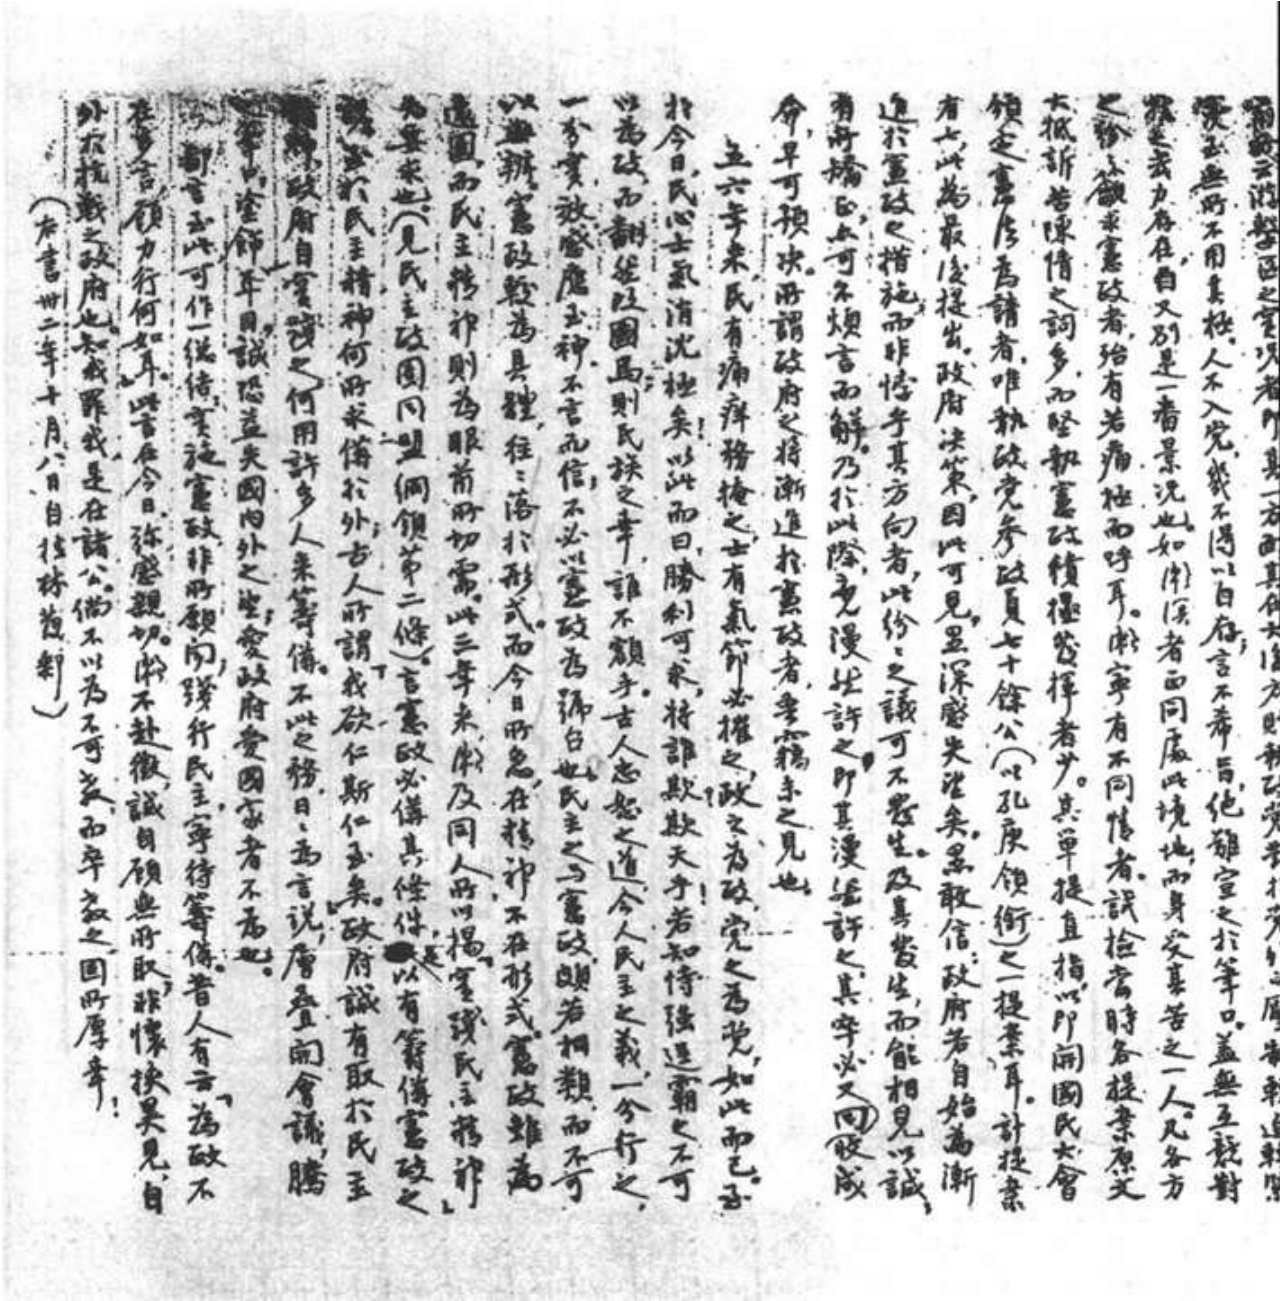 浸至無所不用其極。人不入党，幾不得以自存；言不希旨，絕難宣之於筆口。蓋無互競對
抗之武力存在，自又別是一番景況也。如漱溟者正同處此境地，而身受其苦之一人。凡各方
之紛紛籲求憲政者，殆有若痛極而呼耳。漱寧有不同情者。試檢當時各提案原文
大抵訴苦陳情之詞多，而堅執憲政積極發揮者少。其單提直指，以即開國民大會
頒定憲法為請者，唯執政党參政員七十餘公（以孔庚領銜）之一提案耳。計提案
者七，此為最後提出。政府決策，因此可見。愚深感失望矣。愚敢信：政府若自始為漸
進於憲政之措施，而非悖乎其方向者，此紛紛之議可不發生。及其發生，而能相見以誠，
有所矯正，亦可不煩言而解。乃於此際，竟漫然許之，即其漫然許之，其卒必又同收成
命，早可預決。所謂政府之將漸進於憲政者，吾竊未之見也。
五六年來，民有痛癢務掩之，士有氣節必摧之，政之為政，党之為党，如此而已。至
於今日，民心士氣消沈極矣！以此而曰勝利可求，將誰欺？欺天乎！若知恃強逞霸之不可
以為政，而翻然改圖焉，則民族之幸，誰不額手。古人忠恕之道，今人民主之義，一分行之，
一分實效，感應至神。不言而信，不必以憲政為號召也。民主之與憲政頗若相類，而不可
以無辨。憲政較為具體，往往落於形式。而今日所急，在精神不在形式。憲政雖為
遠圖，而民主精神則為眼前所切需。此三年來，漱及同人所以揭「實踐民主精神」
為要求也。（見民主政團同盟綱領第二條）。言憲政必備其條件，是以有籌備憲政之
說。至於民主精神何所求備於外；古人所謂「我欲仁斯仁至矣」。政府誠有取於民主
精神，政府自實踐之，何用許多人來籌備。不此之務，日日為言說，層疊開會議，騰
之筆口，塗飾耳目，誠恐益失國內外之望；愛政府愛國家者不為也。
鄙言至此，可作一總結：實施憲政非所願聞，踐行民主，寧待籌備。昔人有云「為政不
在多言，顧力行何如耳」。此言在今日，弥感親切。漱不赴徵，誠自顧無所取，非懷挾異見，自
外於抗戰之政府也。知我罪我，是在諸公。倘不以為不可教，而卒教之，固所厚幸！
（右書卅二年十月八日自桂林發，鄴）